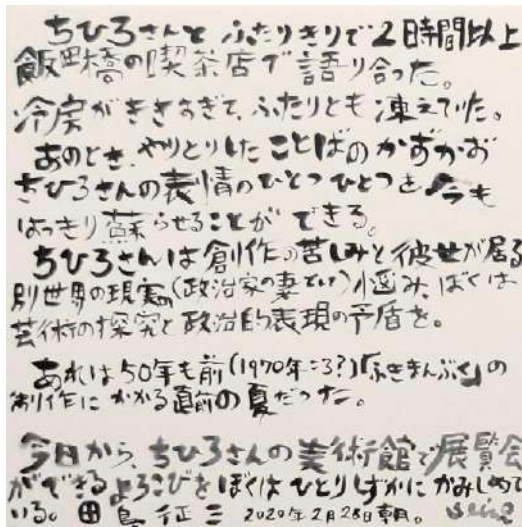 ちひろさんと ふたりきりで2時間以上
飯田橋の喫茶店で語り合った。
冷房がききすぎて、ふたりとも凍えていた。
あのとき、やりとりしたことばのかずかず
ちひろさんの表情のひとつひとつを今も
はっきり蘇らせることができる。
ちひろさんは創作の苦しみと彼女が居る
別世界の現実の(政治家の妻という)悩み、ぼくは
芸術の探究と政治的表現の矛盾を。
あれは50年も前(1970年ころ?)「ふきまんぶく」の
制作にかかる直前の夏だった。
今日から、ちひろさんの美術館で展覧会
ができるよろこびをぼくはひとりしずかにかみしめて
いる。田島征三 2020年2月28日朝。 Seizo